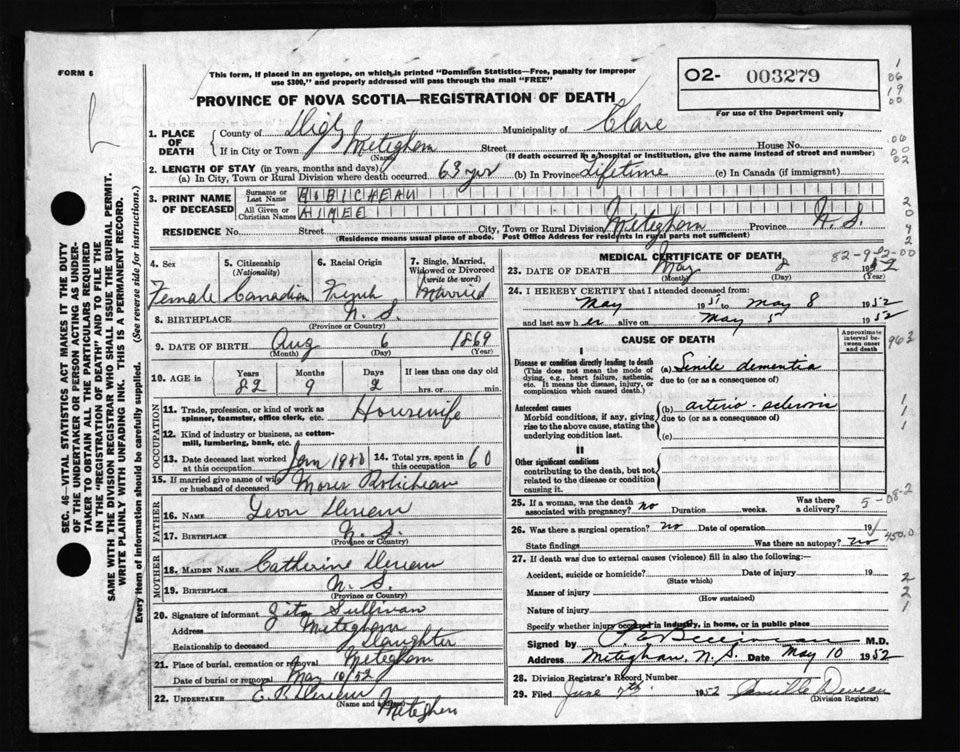 FORM 6
This form, if placed in an envelope, on which is printed "Dominion Statistics—Free, penalty for improper
use $300," and properly addressed will pass through the mail "FREE"
02- 003279
For use of the Department only
PROVINCE OF NOVA SCOTIA—REGISTRATION OF DEATH
1. PLACE OF DEATH
County of Digby Municipality of Clare
If in City or Town Meteghan (Name) Street House No.
(If death occurred in a hospital or institution, give the name instead of street and number)
2. LENGTH OF STAY (in years, months and days)
(a) In City, Town or Rural Division where death occurred 63 yrs (b) In Province Lifetime (c) In Canada (if immigrant)
3. PRINT NAME OF DECEASED
Surname or Last Name ROBICHEAU
All Given or Christian Names AIMEE
RESIDENCE No. Street City, Town or Rural Division Meteghan Province N.S.
(Residence means usual place of abode. Post Office Address for residents in rural parts not sufficient)
4. Sex Female
5. Citizenship (Nationality) Canadian
6. Racial Origin French
7. Single, Married, Widowed or Divorced (write the word) Married
8. BIRTHPLACE N.S.
(Province or Country)
9. DATE OF BIRTH Aug 6 1869
(Month) (Day) (Year)
10. AGE in Years 82 Months 9 Days 2 If less than one day old hrs. or min.
OCCUPATION
11. Trade, profession, or kind of work as spinner, teamster, office clerk, etc. Housewife
12. Kind of industry or business, as cotton-mill, lumbering, bank, etc.
13. Date deceased last worked at this occupation Jan 1950 14. Total yrs. spent in this occupation 60
15. If married give name of wife or husband of deceased Moses Robicheau
FATHER
16. NAME Leon
17. BIRTHPLACE N.S.
(Province or Country)
MOTHER
18. MAIDEN NAME Catherine
19. BIRTHPLACE N.S.
(Province or Country)
20. Signature of informant Zita Sullivan
Address Meteghan
Relationship to deceased Daughter
21. Place of burial, cremation or removal Meteghan
Date of burial or removal May 10/52
22. UNDERTAKER
(Name and address) Meteghan
MEDICAL CERTIFICATE OF DEATH
82-9-2-00
23. DATE OF DEATH May 8 1952
(Month) (Day)
24. I HEREBY CERTIFY that I attended deceased from:
May 1951 to May 8 1952
and last saw her alive on May 5 1952
CAUSE OF DEATH
Approximate interval between onset and death
I
Disease or condition directly leading to death
(This does not mean the mode of dying, e.g., heart failure, asthenia, etc. It means the disease, injury, or complication which caused death.)
(a) Senile dementia
due to (or as a consequence of)
Antecedent causes
Morbid conditions, if any, giving rise to the above cause, stating the underlying condition last.
(b) arterio-sclerosis
due to (or as a consequence of)
(c)
II
Other significant conditions
contributing to the death, but not related to the disease or condition causing it.
25. If a woman, was the death associated with pregnancy? no Duration weeks. Was there a delivery?
26. Was there a surgical operation? no Date of operation 19
State findings Was there an autopsy? no
27. If death was due to external causes (violence) fill in also the following:—
Accident, suicide or homicide? Date of injury 19
(State which)
Manner of injury
(How sustained)
Nature of injury
Specify whether injury occurred in industry, in home, or in public place
Signed by M.D.
Address Meteghan, N.S. Date May 10 1952
28. Division Registrar's Record Number
29. Filed June 7th. 1952 Camille Deveau
(Division Registrar)
SEC. 46—VITAL STATISTICS ACT MAKES IT THE DUTY
OF THE UNDERTAKER OR PERSON ACTING AS UNDER-
TAKER TO OBTAIN ALL THE PARTICULARS REQUIRED
IN THE "REGISTRATION OF DEATH" AND TO FILE THE
SAME WITH THE DIVISION REGISTRAR WHO SHALL ISSUE THE BURIAL PERMIT.
WRITE PLAINLY WITH UNFADING INK. THIS IS A PERMANENT RECORD.
Every item of information should be carefully supplied. (See reverse side for instructions.)
1
06
19
00
06
00
02
2
0
9
2
963
1
1
1
5-08-2
450.0
2
2
1